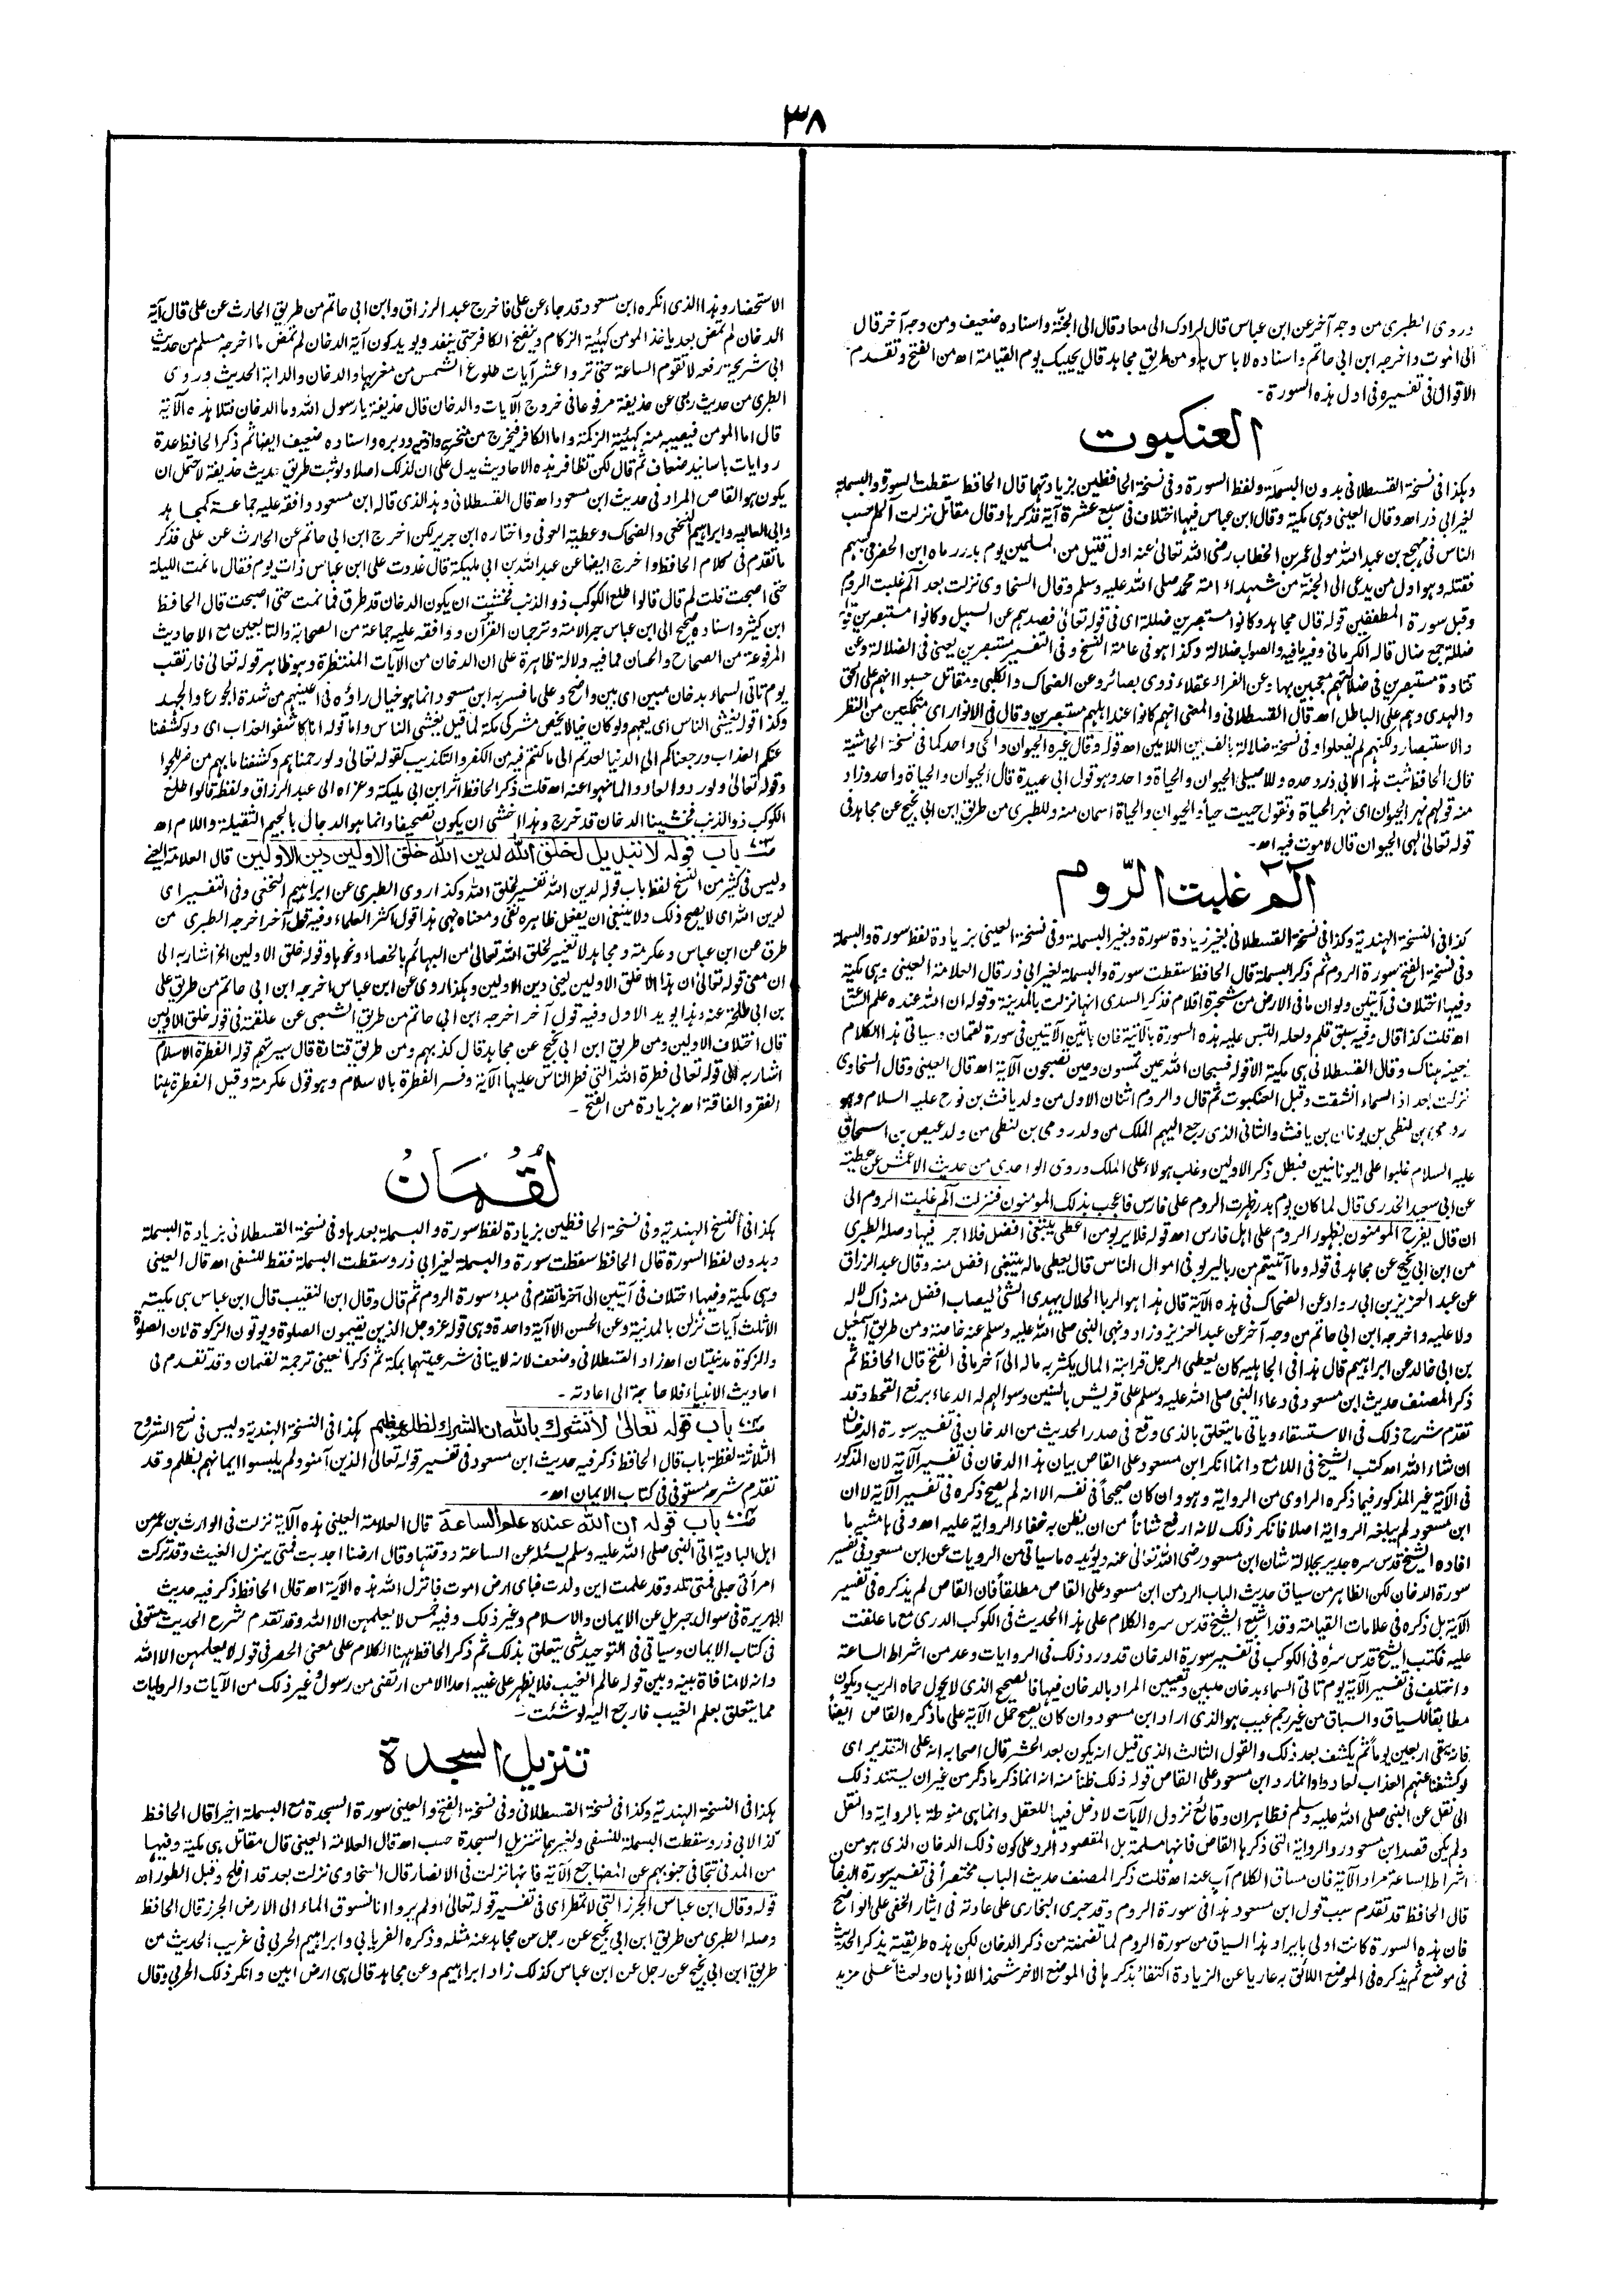 ٣٨
وروى الطبرى من وجه آخر عن ابن عباس قال لرادك الى معاد قال الى الجنة واسناده ضعيف ومن وجه آخر قال
الى الموت واخرجه ابن ابى حاتم واسناده لا باس به ومن طريق مجاهد قال يحييك يوم القيامة اھ من الفتح وتقدم
الاقوال فى تفسيره فى اول هذه السورة۔
العنكبوت
وهكذا فى نسخة القسطلانى بدون البسملة ولفظ السورة وفى نسخة الحافظين بزيادتهما قال الحافظ سقطت لسورة والبسملة
لغير ابى ذر اھ وقال العينى وهى مكية وقال ابن عباس فيها اختلاف فى سبع عشرة آية فذكرها وقال مقاتل نزلت الم احسب
الناس فى مهجع بن عبد الله مولى عمر بن الخطاب رضى الله تعالى عنه اول قتيل من المسلمين يوم بدر رماه ابن الحضرمى بسهم
فقتله وهو اول من يدعى الى الجنة من شهداء امة محمد صلى الله عليه وسلم وقال السخاوى نزلت بعد الم غلبت الروم
وقبل سورة المطففين قوله قال مجاهد وكانوا مستبصرين ضللة اى فى قوله تعالى فصدهم عن السبيل وكانوا مستبصرين
ضللة جمع ضال قاله الكرمانى وفيه ما فيه والصواب ضلالة وكذا هو فى عامة النسخ وفى التفسير مستبصرين يعنى فى الضلالة وعن
قتادة مستبصرين فى ضلالتهم معجبين بها وعن الفراء عقلاء ذوى بصائر وعن الضحاك والكلبى ومقاتل حسبوا انهم على الحق
والهدى وهم على الباطل اھ قال القسطلانى والمعنى انهم كانوا عند اهلهم مستبصرين وقال فى الانوار اى متمكنين من النظر
والاستبصار ولكنهم لم يفعلوا وفى نسخة ضلالة بالف بين اللامين اھ قوله وقال غيره الحيوان والحى واحد كما فى نسخة الحاشية
قال الحافظ ثبت هذا لابى ذر وحده وللاصيلى الحيوان والحياة واحد وهو قول ابى عبيدة قال الحيوان والحياة واحد وزاد
منه قولهم نهر الحيوان اى نهر الحياة وتقول حييت حيا والحيوان والحياة اسمان منه وللطبرى من طريق ابن ابى نجيح عن مجاهد فى
قوله تعالى لهى الحيوان قال لا موت فيه اھ۔
الٓمٓ غلبت الرّوم
كذا فى النسخة الهندية وكذا فى نسخة القسطلانى بغير زيادة سورة وبغير البسملة وفى نسخة العينى بزيادة لفظ سورة والبسملة
وفى نسخة الفتح سورة الروم ثم ذكر البسملة قال الحافظ سقطت سورة والبسملة لغير ابى ذر قال العلامة العينى وهى مكية
وفيها اختلاف فى آيتين ولو ان ما فى الارض من شجرة اقلام فذكر السدى انها نزلت بالمدينة وقوله ان الله عنده علم الساعة
اھ قلت كذا قال وفيه سبق قلم ولعله التبس عليه هذه السورة بالآتية فان هاتين الآيتين فى سورة لقمان وسياتى هذا الكلام
بعينه هناك وقال القسطلانى هى مكية الا قوله فسبحان الله حين تمسون وحين تصبحون الآية اھ قال العينى وقال السخاوى
نزلت بعد اذا السماء انشقت وقبل العنكبوت ثم قال والروم اثنان الاول من ولد يافث بن نوح عليه السلام وهو
رومى بن لنطى بن يونان بن يافث والثانى الذى رجع اليهم الملك من ولد رومى بن لنطى من ولد عيص بن اسحاق
عليه السلام غلبوا على اليونانيين فبطل ذكر الاولين وغلب هولاء على الملك وروى الواحدى من حديث الاعمش عن عطية
عن ابى سعيد الخدرى قال لما كان يوم بدر ظهرت الروم على فارس فاعجب بذلك المومنون فنزلت الم غلبت الروم الى
ان قال يفرح المومنون بظهور الروم على اهل فارس اھ قوله فلا يربو من اعطى يبتغى افضل فلا اجر فيها وصله الطبرى
من ابن ابى نجيح عن مجاهد فى قوله وما آتيتم من ربا ليربو فى اموال الناس قال يعطى ماله يبتغى افضل منه وقال عبد الرزاق
عن عبد العزيز بن ابى رواد عن الضحاك فى هذه الآية قال هذا هو الربا الحلال يهدى الشئ ليصاب افضل منه ذاك لا له
ولا عليه واخرجه ابن ابى حاتم من وجه آخر عن عبد العزيز وزاد ونهى النبى صلى الله عليه وسلم عنه خاصة ومن طريق اسمعيل
بن ابى خالد عن ابراهيم قال هذا فى الجاهلية كان يعطى الرجل قرابته المال يكثر به ماله الى آخر ما فى الفتح قال الحافظ ثم
ذكر المصنف حديث ابن مسعود فى دعاء النبى صلى الله عليه وسلم على قريش بالسنين وسوالهم له الدعاء برفع القحط وقد
تقدم شرح ذلك فى الاستسقاء وياتى ما يتعلق بالذى وقع فى صدر الحديث من الدخان فى تفسير سورة الدخان
ان شاء الله اھ كتب الشيخ فى اللامع وانما انكر ابن مسعود على القاص بيان هذا الدخان فى تفسير الآية لان المذكور
فى الآية غير المذكور فيما ذكره الراوى من الرواية وهو وان كان صحيحا فى نفسه الا انه لم يصح ذكره فى تفسير الآية لا ان
ابن مسعود لم يبلغه الرواية اصلا فانكر ذلك لانه ارفع شانا من ان يظن به خفاء الرواية عليه اھ وفى هامشه ما
افاده الشيخ قدس سره جدير بجلالة شان ابن مسعود رضى الله تعالى عنه ويؤيده ما سياتى من الرويات عن ابن مسعود فى تفسير
سورة الدخان لكن الظاهر من سياق حديث الباب الرد من ابن مسعود على القاص مطلقا فان القاص لم يذكره فى تفسير
الآية بل ذكره فى علامات القيامة وقد اشبع الشيخ قدس سره الكلام على هذا الحديث فى الكوكب الدرى مع ما علقت
عليه فكتب الشيخ قدس سره فى الكوكب فى تفسير سورة الدخان قد ورد ذلك فى الروايات وعد من اشراط الساعة
واختلف فى تفسير الآية يوم تاتى السماء بدخان مبين وتعيين المراد بالدخان فيها فالصحيح الذى لا يحول حماه الريب ويكون
مطابقا للسياق والسباق من غير رجم غيب هو الذى اراد ابن مسعود وان كان يصح حمل الآية على ما ذكره القاص ايضا
فانه يبقى اربعين يوما ثم يكشف بعد ذلك والقول الثالث الذى قيل انه يكون بعد الحشر قال اصحابه انه على التقدير اى
لو كشفنا عنهم العذاب لعادوا وانما رد ابن مسعود على القاص قوله ذلك ظنا منه انه انما ذكر ما ذكر من غير ان يستند ذلك
الى نقل عن النبى صلى الله عليه وسلم فظاهر ان وقائع نزول الآيات لا دخل فيها للعقل وانما هى منوطة بالرواية والنقل
ولم يكن قصد ابن مسعود رد الرواية التى ذكرها القاص فانها مسلمة بل المقصود الرد على كون ذلك الدخان الذى هو من
اشراط الساعة مراد الآية فان مساق الكلام آب عنه اھ قلت ذكر المصنف حديث الباب مختصرا فى تفسير سورة الدخان
قال الحافظ قد تقدم سبب قول ابن مسعود هذا فى سورة الروم وقد جرى البخارى على عادته فى ايثار الخفى على الواضح
فان هذه السورة كانت اولى بايراد هذا السياق من سورة الروم لما تضمنته من ذكر الدخان لكن هذه طريقته يذكر الحديث
فى موضع ثم يذكره فى الموضع اللائق به عاريا عن الزيادة اكتفاء بذكرها فى الموضع الآخر شحذا للاذهان وبعثا على مزيد
الاستحضار وهذا الذى انكره ابن مسعود قد جاء عن على فاخرج عبد الرزاق وابن ابى حاتم من طريق الحارث عن على قال آية
الدخان لم تمض بعد ياخذ المومن كهيئة الزكام وينفخ الكافر حتى ينفد ويويد كون آية الدخان لم تمض ما اخرجه مسلم من حديث
ابى شريحة رفعه لا تقوم الساعة حتى تروا عشر آيات طلوع الشمس من مغربها والدخان والدابة الحديث وروى
الطبرى من حديث ربعى عن حذيفة مرفوعا فى خروج الآيات والدخان قال حذيفة يا رسول الله وما الدخان فتلا هذه الآية
قال اما المومن فيصيبه منه كهيئة الزكمة واما الكافر فيخرج من منخريه واذنيه ودبره واسناده ضعيف ايضا ثم ذكر الحافظ عدة
روايات باسانيد ضعاف ثم قال لكن تظافر هذه الاحاديث يدل على ان لذلك اصلا ولو ثبت طريق حديث حذيفة لاحتمل ان
يكون هو القاص المراد فى حديث ابن مسعود اھ قال القسطلانى وهذا الذى قاله ابن مسعود وافقه عليه جماعة كمجاهد
وابى العالية وابراهيم النخعى والضحاك وعطية العوفى واختاره ابن جرير لكن اخرج ابن ابى حاتم عن الحارث عن على فذكر
ما تقدم فى كلام الحافظ واخرج ايضا عن عبد الله بن ابى مليكة قال غدوت على ابن عباس ذات يوم فقال ما نمت الليلة
حتى اصبحت قلت لم قال قالوا طلع الكوكب ذو الذنب فخشيت ان يكون الدخان قد طرق فما نمت حتى اصبحت قال الحافظ
ابن كثير واسناده صحيح الى ابن عباس حبر الامة وترجمان القرآن ووافقه عليه جماعة من الصحابة والتابعين مع الاحاديث
المرفوعة من الصحاح والحسان مما فيه دلالة ظاهرة على ان الدخان من الآيات المنتظرة وهو ظاهر قوله تعالى فارتقب
يوم تاتى السماء بدخان مبين اى بين واضح وعلى ما فسر به ابن مسعود انما هو خيال راؤه فى اعينهم من شدة الجوع والجهد
وكذا قوله يغشى الناس اى يعمهم ولو كان خيالا يخص مشركى مكة لما قيل يغشى الناس واما قوله انا كاشفو العذاب اى ولو كشفنا
عنكم العذاب ورجعناكم الى الدنيا لعدتم الى ما كنتم فيه من الكفر والتكذيب كقوله تعالى ولو رحمناهم وكشفنا ما بهم من ضر للجوا
وقوله تعالى ولو ردوا لعادوا لما نهوا عنه اھ قلت ذكر الحافظ اثر ابن ابى مليكة وعزاه الى عبد الرزاق ولفظه قالوا طلع
الكوكب ذو الذنب فخشينا الدخان قد خرج وهذا اخشى ان يكون تصحيفا وانما هو الدجال بالجيم الثقيلة واللام اھ
باب قوله لا تبديل لخلق الله لدين الله خلق الاولين دين الاولين قال العلامة العينى
وليس فى كثير من النسخ لفظ باب قوله لدين الله تفسير لخلق الله وكذا روى الطبرى عن ابراهيم النخعى وفى التفسير اى
لدين الله اى لا يصح ذلك ولا ينبغى ان يفعل ظاهره نفى ومعناه نهى هذا قول اكثر العلماء وفيه قول آخر اخرجه الطبرى من
طرق عن ابن عباس وعكرمة ومجاهد لا تغيير لخلق الله تعالى من البهائم بالخصاء ونحوها وقوله خلق الاولين الخ اشار به الى
ان معنى قوله تعالى ان هذا الا خلق الاولين يعنى دين الاولين وهكذا روى عن ابن عباس اخرجه ابن ابى حاتم من طريق على
بن ابى طلحة عنه وهذا يويد الاول وفيه قول آخر اخرجه ابن ابى حاتم من طريق الشعبى عن علقمة فى قوله خلق الاولين
قال اختلاق الاولين ومن طريق ابن ابى نجيح عن مجاهد قال كذبهم ومن طريق قتادة قال سيرتهم قوله الفطرة الاسلام
اشار به الى قوله تعالى فطرة الله التى فطر الناس عليها الآية وفسر الفطرة بالاسلام وهو قول عكرمة وقيل الفطرة هنا
الفقر والفاقة اھ بزيادة من الفتح ۔
لُقمَانُ
هكذا فى النسخ الهندية وفى نسخة الحافظين بزيادة لفظ سورة والبسملة بعدها وفى نسخة القسطلانى بزيادة البسملة
وبدون لفظ السورة قال الحافظ سقطت سورة والبسملة لغير ابى ذر وسقطت البسملة فقط للنسفى اھ قال العينى
وهى مكية وفيها اختلاف فى آيتين الى آخر ما تقدم فى مبدء سورة الروم ثم قال وقال ابن النقيب قال ابن عباس هى مكية
الا ثلث آيات نزلن بالمدنية وعن الحسن الا آية واحدة وهى قوله عز وجل الذين يقيمون الصلوة ويوتون الزكوة لان الصلوة
والزكوة مدنيتان اھ زاد القسطلانى وضعف لانه لا ينافى شرعيتهما بمكة ثم ذكر العينى ترجمة لقمان وقد تقدم فى
احاديث الانبياء فلا حاجة الى اعادته ۔
باب قوله تعالى لا تشرك بالله ان الشرك لظلم عظيم هكذا فى النسخة الهندية وليس فى نسخ الشروح
الثلاثة لفظة باب قال الحافظ ذكر فيه حديث ابن مسعود فى تفسير قوله تعالى الذين آمنوا ولم يلبسوا ايمانهم بظلم وقد
تقدم شرحه مستوفى فى كتاب الايمان اھ۔
باب قوله ان الله عنده علم الساعة قال العلامة العينى هذه الآية نزلت فى الوارث بن عمرو من
اهل البادية اتى النبى صلى الله عليه وسلم يسئله عن الساعة ووقتها وقال ارضنا اجدبت فمتى ينزل الغيث وقد تركت
امرأتى حبلى فمتى تلد وقد علمت اين ولدت فباى ارض اموت فانزل الله هذه الآية اھ قال الحافظ ذكر فيه حديث
ابى هريرة فى سوال جبريل عن الايمان والاسلام وغير ذلك وفيه خمس لا يعلمهن الا الله وقد تقدم شرح الحديث مستوفى
فى كتاب الايمان وسياتى فى التوحيد شئ يتعلق بذلك ثم ذكر الحافظ ههنا الكلام على معنى الحصر فى قوله لا يعلمهن الا الله
وانه لا منافاة بينه وبين قوله عالم الغيب فلا يظهر على غيبه احدا الا من ارتضى من رسول وغير ذلك من الآيات والروايات
مما يتعلق بعلم الغيب فارجع اليه لو شئت ۔
تنزيل السجدة
هكذا فى النسخة الهندية وكذا فى نسخة القسطلانى وفى نسخة الفتح والعينى سورة السجدة مع البسملة اخيرا قال الحافظ
كذا لابى ذر وسقطت البسملة للنسفى ولغيرهما تنزيل السجدة حسب اھ قال العلامة العينى قال مقاتل هى مكية وفيها
من المدنى تتجافى جنوبهم عن المضاجع الآية فانها نزلت فى الانصار قال السخاوى نزلت بعد قد افلح وقبل الطور اھ
قوله وقال ابن عباس الجرز التى لا تمطر اى فى تفسير قوله تعالى اولم يروا انا نسوق الماء الى الارض الجرز قال الحافظ
وصله الطبرى من طريق ابن ابى نجيح عن رجل عن مجاهد عنه مثله وذكره الفريابى وابراهيم الحربى فى غريب الحديث من
طريق ابن ابى نجيح عن رجل عن ابن عباس كذلك زاد ابراهيم وعن مجاهد قال هى ارض ابين وانكر ذلك الحربى وقال